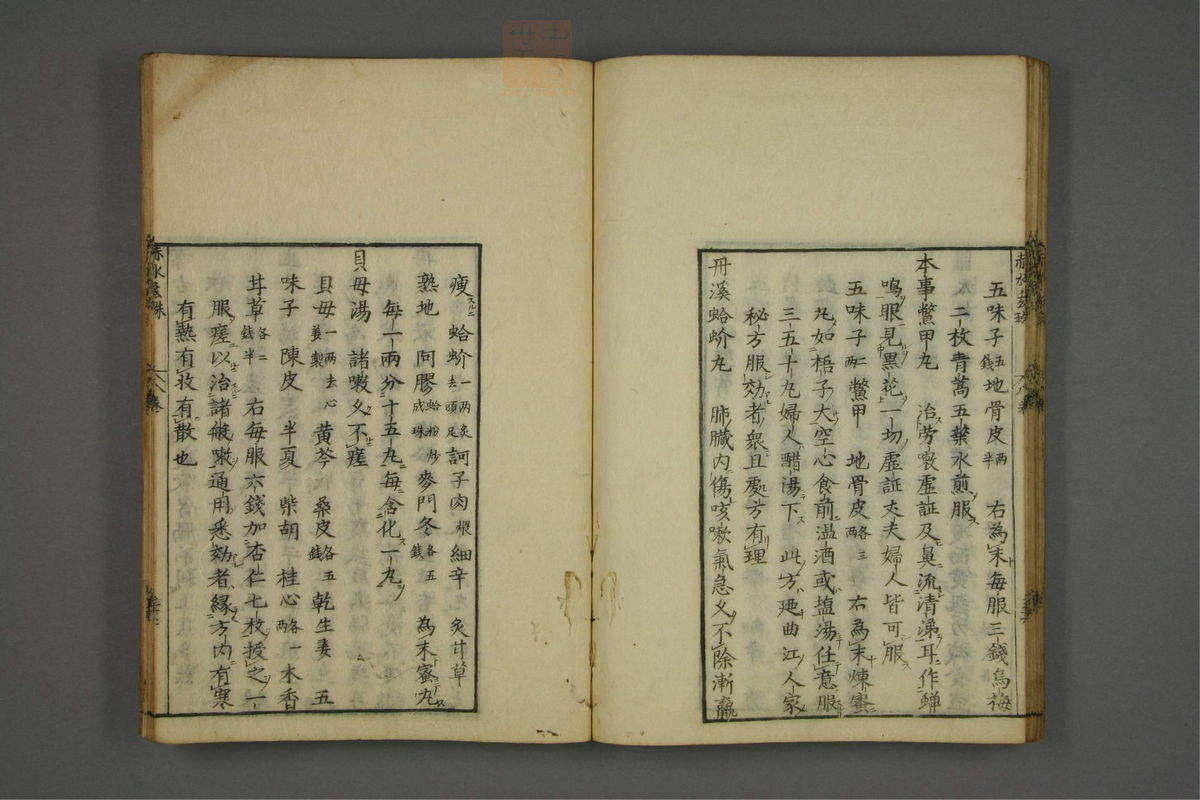 五味子五錢地骨皮兩半　右為末每服三錢烏梅
二枚青蒿五葉水煎服
本事鱉甲丸　治勞嗽虛証及鼻流清涕耳作蟬
鳴眼見黑花一切虛証夫夫婦人皆可服
五味子二兩鱉甲　地骨皮各三兩　右為末煉蜜
丸如梧子大空心食前温酒或塩湯任意服
三五十丸婦人醋湯下　此方曲江人家
秘方服効者衆且處方有理
丹溪蛤蚧丸　肺臟内傷咳嗽氣急久不除漸羸
瘦　蛤蚧一兩炙去頭足訶子肉煨細辛　炙甘草
熟地　阿膠蛤粉炒成珠麥門冬各五錢　為末蜜丸
每一兩分十五丸每含化一丸
貝母湯　諸嗽久不瘥
貝母一兩去心姜製　黄芩　桑皮各五錢　乾生姜　五
味子　陳皮　半夏　柴胡　桂心各一兩　木香
甘草各二錢半　右每服六錢加杏仁七枚授之一
服瘥以治諸般嗽通用悉効者緣方内有寒
有熱有收有散也